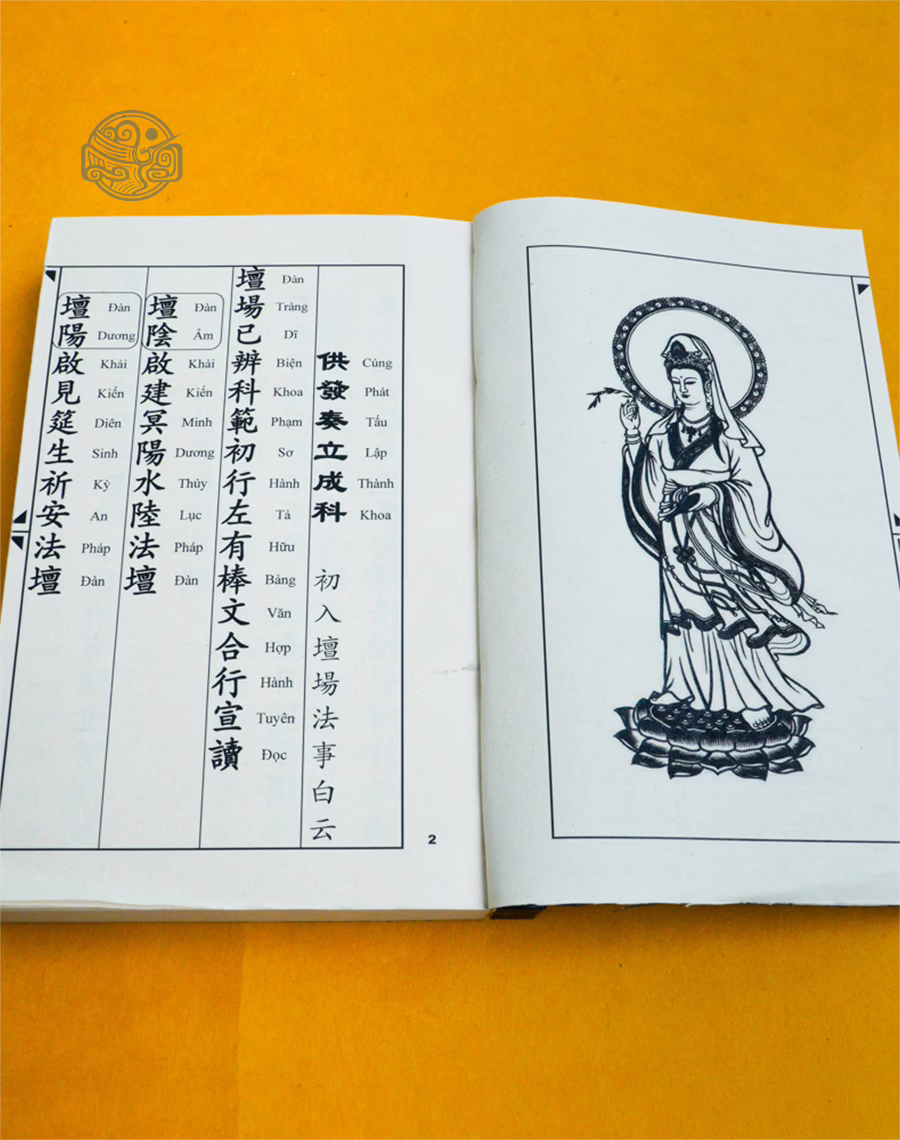 供發奏立成科
Cúng Phát Tấu Lập Thành Khoa
初入壇場法事白云
壇場已辨科範初行左有棒文合行宣讀
Đàn Tràng Dĩ Biện Khoa Phạm Sơ Hành Tả Hữu Bảng Văn Hợp Hành Tuyên Đọc
壇陰啟建冥陽水陸法壇
Đàn Âm Khải Kiến Minh Dương Thủy Lục Pháp Đàn
壇陽啟見筵生祈安法壇
Đàn Dương Khải Kiến Diên Sinh Kỳ An Pháp Đàn
2